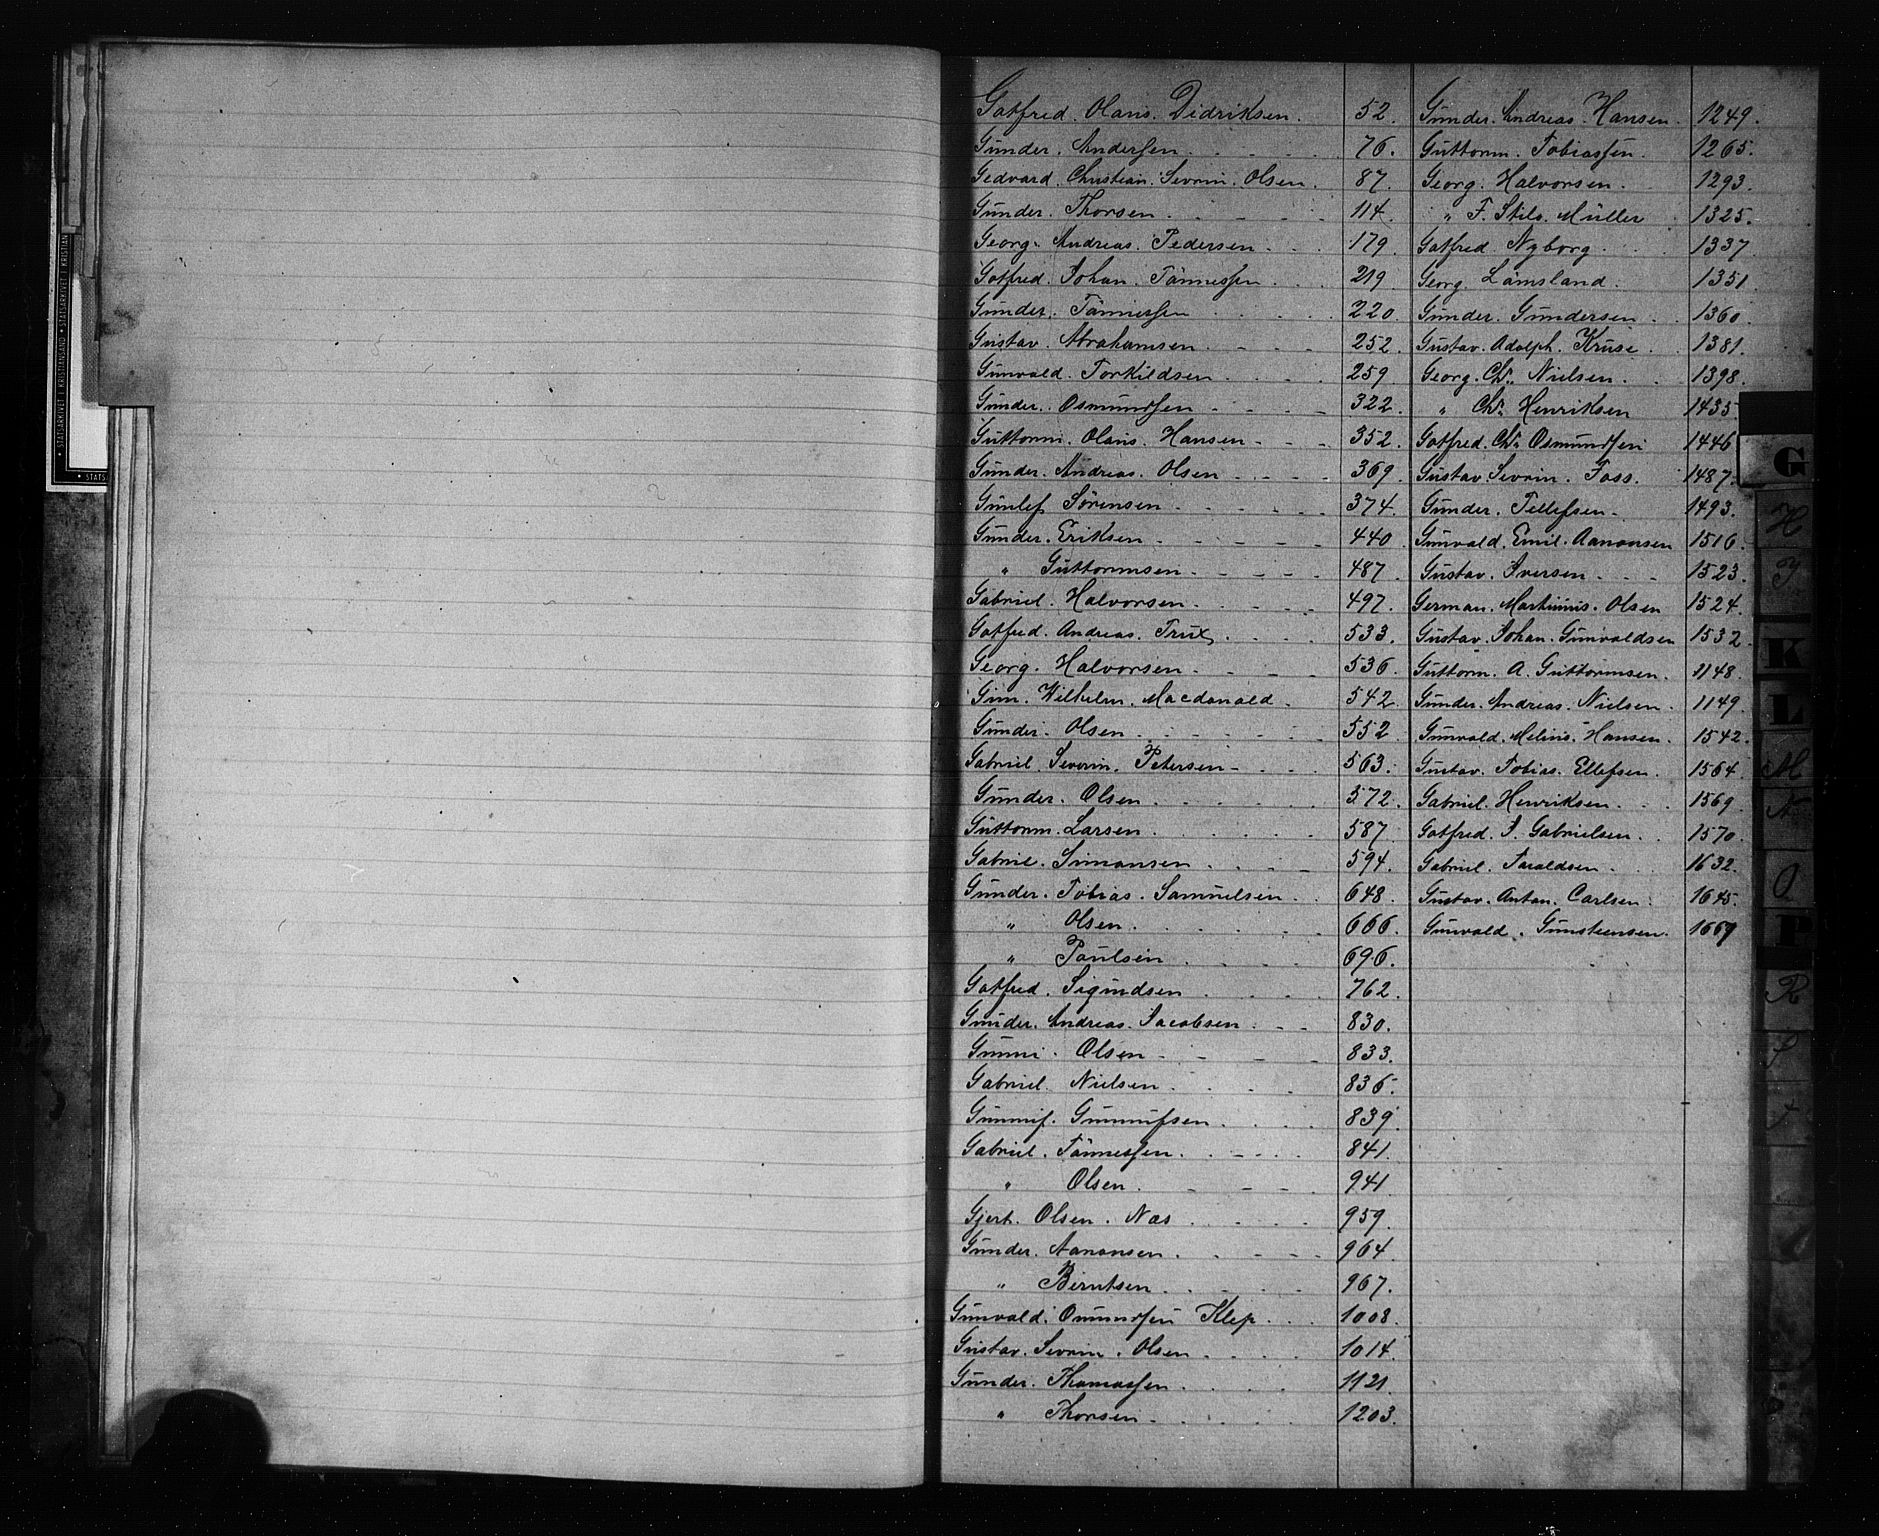 Gotfred. Olaus. Didriksen. 52.
Gunder. Andersen. 76.
Gedvard. Christian. Sevrin. Olsen. 87.
Gunder. Thorsen. 114.
Georg. Andreas. Pedersen. 179
Gotfred. Johan. Tönnessen 219
Gunder. Tönnessen 220.
Gustav. Abrahamsen 252.
Gunvald. Torkildsen 259
Gunder. Osmundsen 322.
Guttorm. Olaus. Hansen 352.
Gunder. Andreas. Olsen 369
Gunlef Sörensen 374.
Gunder. Eriksen 440
" Guttormsen 487.
Gabriel. Halvorsen 497.
Gotfred. Andreas. Trux 533.
Georg. Halvorsen 536
Gun. Wilhelm. Macdonald 542.
Gunder. Olsen 552
Gabriel. Severin. Petersen 563.
Gunder. Olsen 572.
Guttorm. Larsen 587
Gabriel. Simonsen 594.
Gunder. Tobias. Samuelsen 648.
" Olsen 666.
" Paulsen 696.
Gotfred. Sigundsen 762.
Gunder. Andreas. Jacobsen 830.
Gunni. Olsen 833.
Gabriel. Nielsen 836.
Gunnuf. Gunnufsen 839.
Gabriel. Tönnessen 841.
" Olsen 941.
Gjert. Olsen. Næs 959.
Gunder. Aanonsen 964
" Berntsen 967.
Gunvald. Omundsen Klep 1008
Gustav. Sevrin. Olsen 1014.
Gunder. Thomassen 1121
" Thorsen 1203.
Gunder. Andreas. Hansen. 1249.
Guttorm. Tobiassen. 1265.
Georg. Halvorsen. 1293.
" F. Stilo. Müller 1325.
Gotfred. Nyborg 1337
Georg Lömsland. 1351
Gunder. Gundersen 1360
Gustav. Adolph. Kruse 1381.
Georg. Chr. Nielsen. 1398.
" Chr. Henriksen 1435
Gotfred. Chr. Osmundsen 1446
Gustav. Sevrin. Foss. 1487.
Gunder. Tellefsen 1493.
Gunvald. Emil. Aanonsen 1516.
Gustav. Iversen 1523.
German. Martinius. Olsen 1524.
Gustav. Johan. Gunvaldsen 1532
Guttorm. A. Guttormsen. 1148.
Gunder. Andreas. Nielsen. 1149.
Gunvald. Melius. Hansen. 1542.
Gustav. Tobias. Ellefsen. 1564.
Gabriel. Henriksen 1569.
Gotfred. J. Gabrielsen. 1570.
Gabriel. Taraldsen. 1632.
Gustav. Anton. Carlsen. 1645.
Gunvald. Gunsteensen. 1669
G
H
K
L
M
N
O
P
R
STATSARKIVET I KRISTIANSAND • STATSARKIVET I KRISTIAN
• STATSA